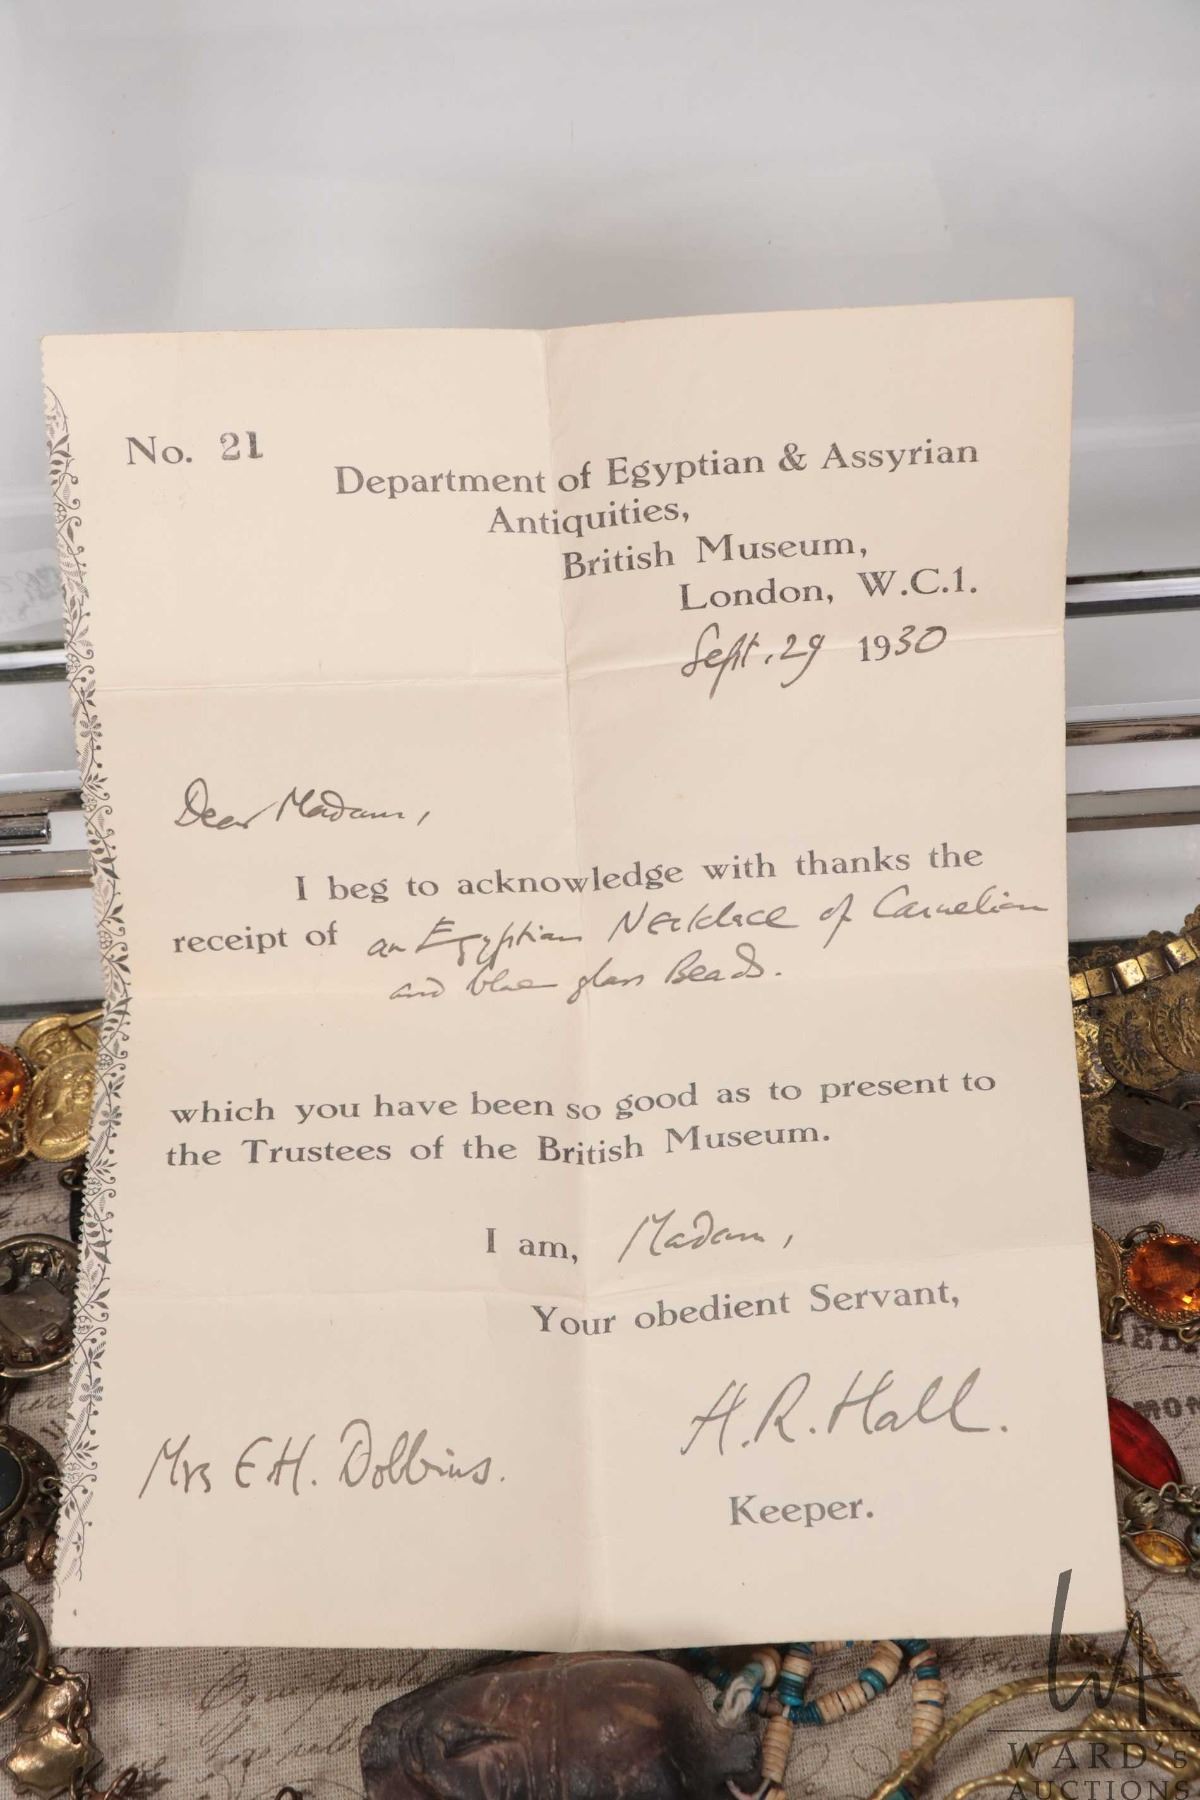 No. 21
Department of Egyptian & Assyrian
Antiquities,
British Museum,
London, W.C.1.
Sept. 29 1930
Dear Madam,
I beg to acknowledge with thanks the
receipt of an Egyptian Necklace of Carnelian
and blue glass Beads.
which you have been so good as to present to
the Trustees of the British Museum.
I am, Madam,
Your obedient Servant,
H. R. Hall.
Mrs E H. Dobbins.
Keeper.
WARD's
AUCTIONS